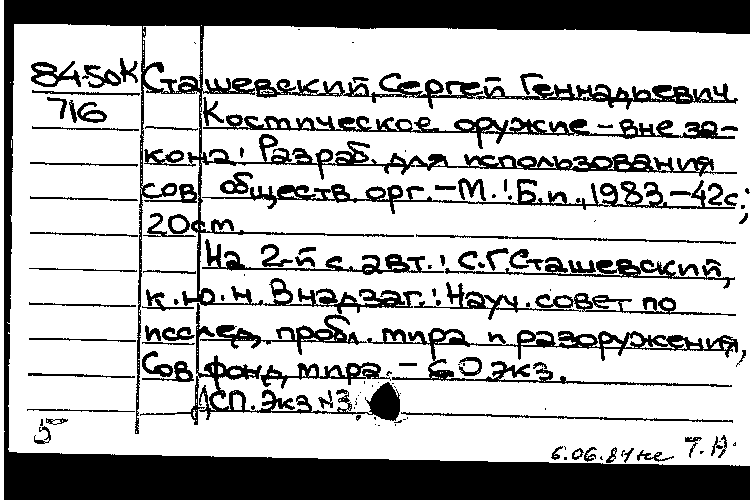 84-50к Сташевский, Сергей Геннадьевич.
716 Костическое оружие - вне за-
кона! Разраб. для использования
сов обществ. орг. - М.: Б.и., 1983. - 42с;
20см.
На 2-й с. авт.: С.Г. Сташевский,
к.ю.н. В надзаг.: Науч. совет по
исслед. пробл. мира и разоружения,
Сов. фонд мира. - 60 экз.
СП. Экз N3.
5
6.06.84 Т.А.